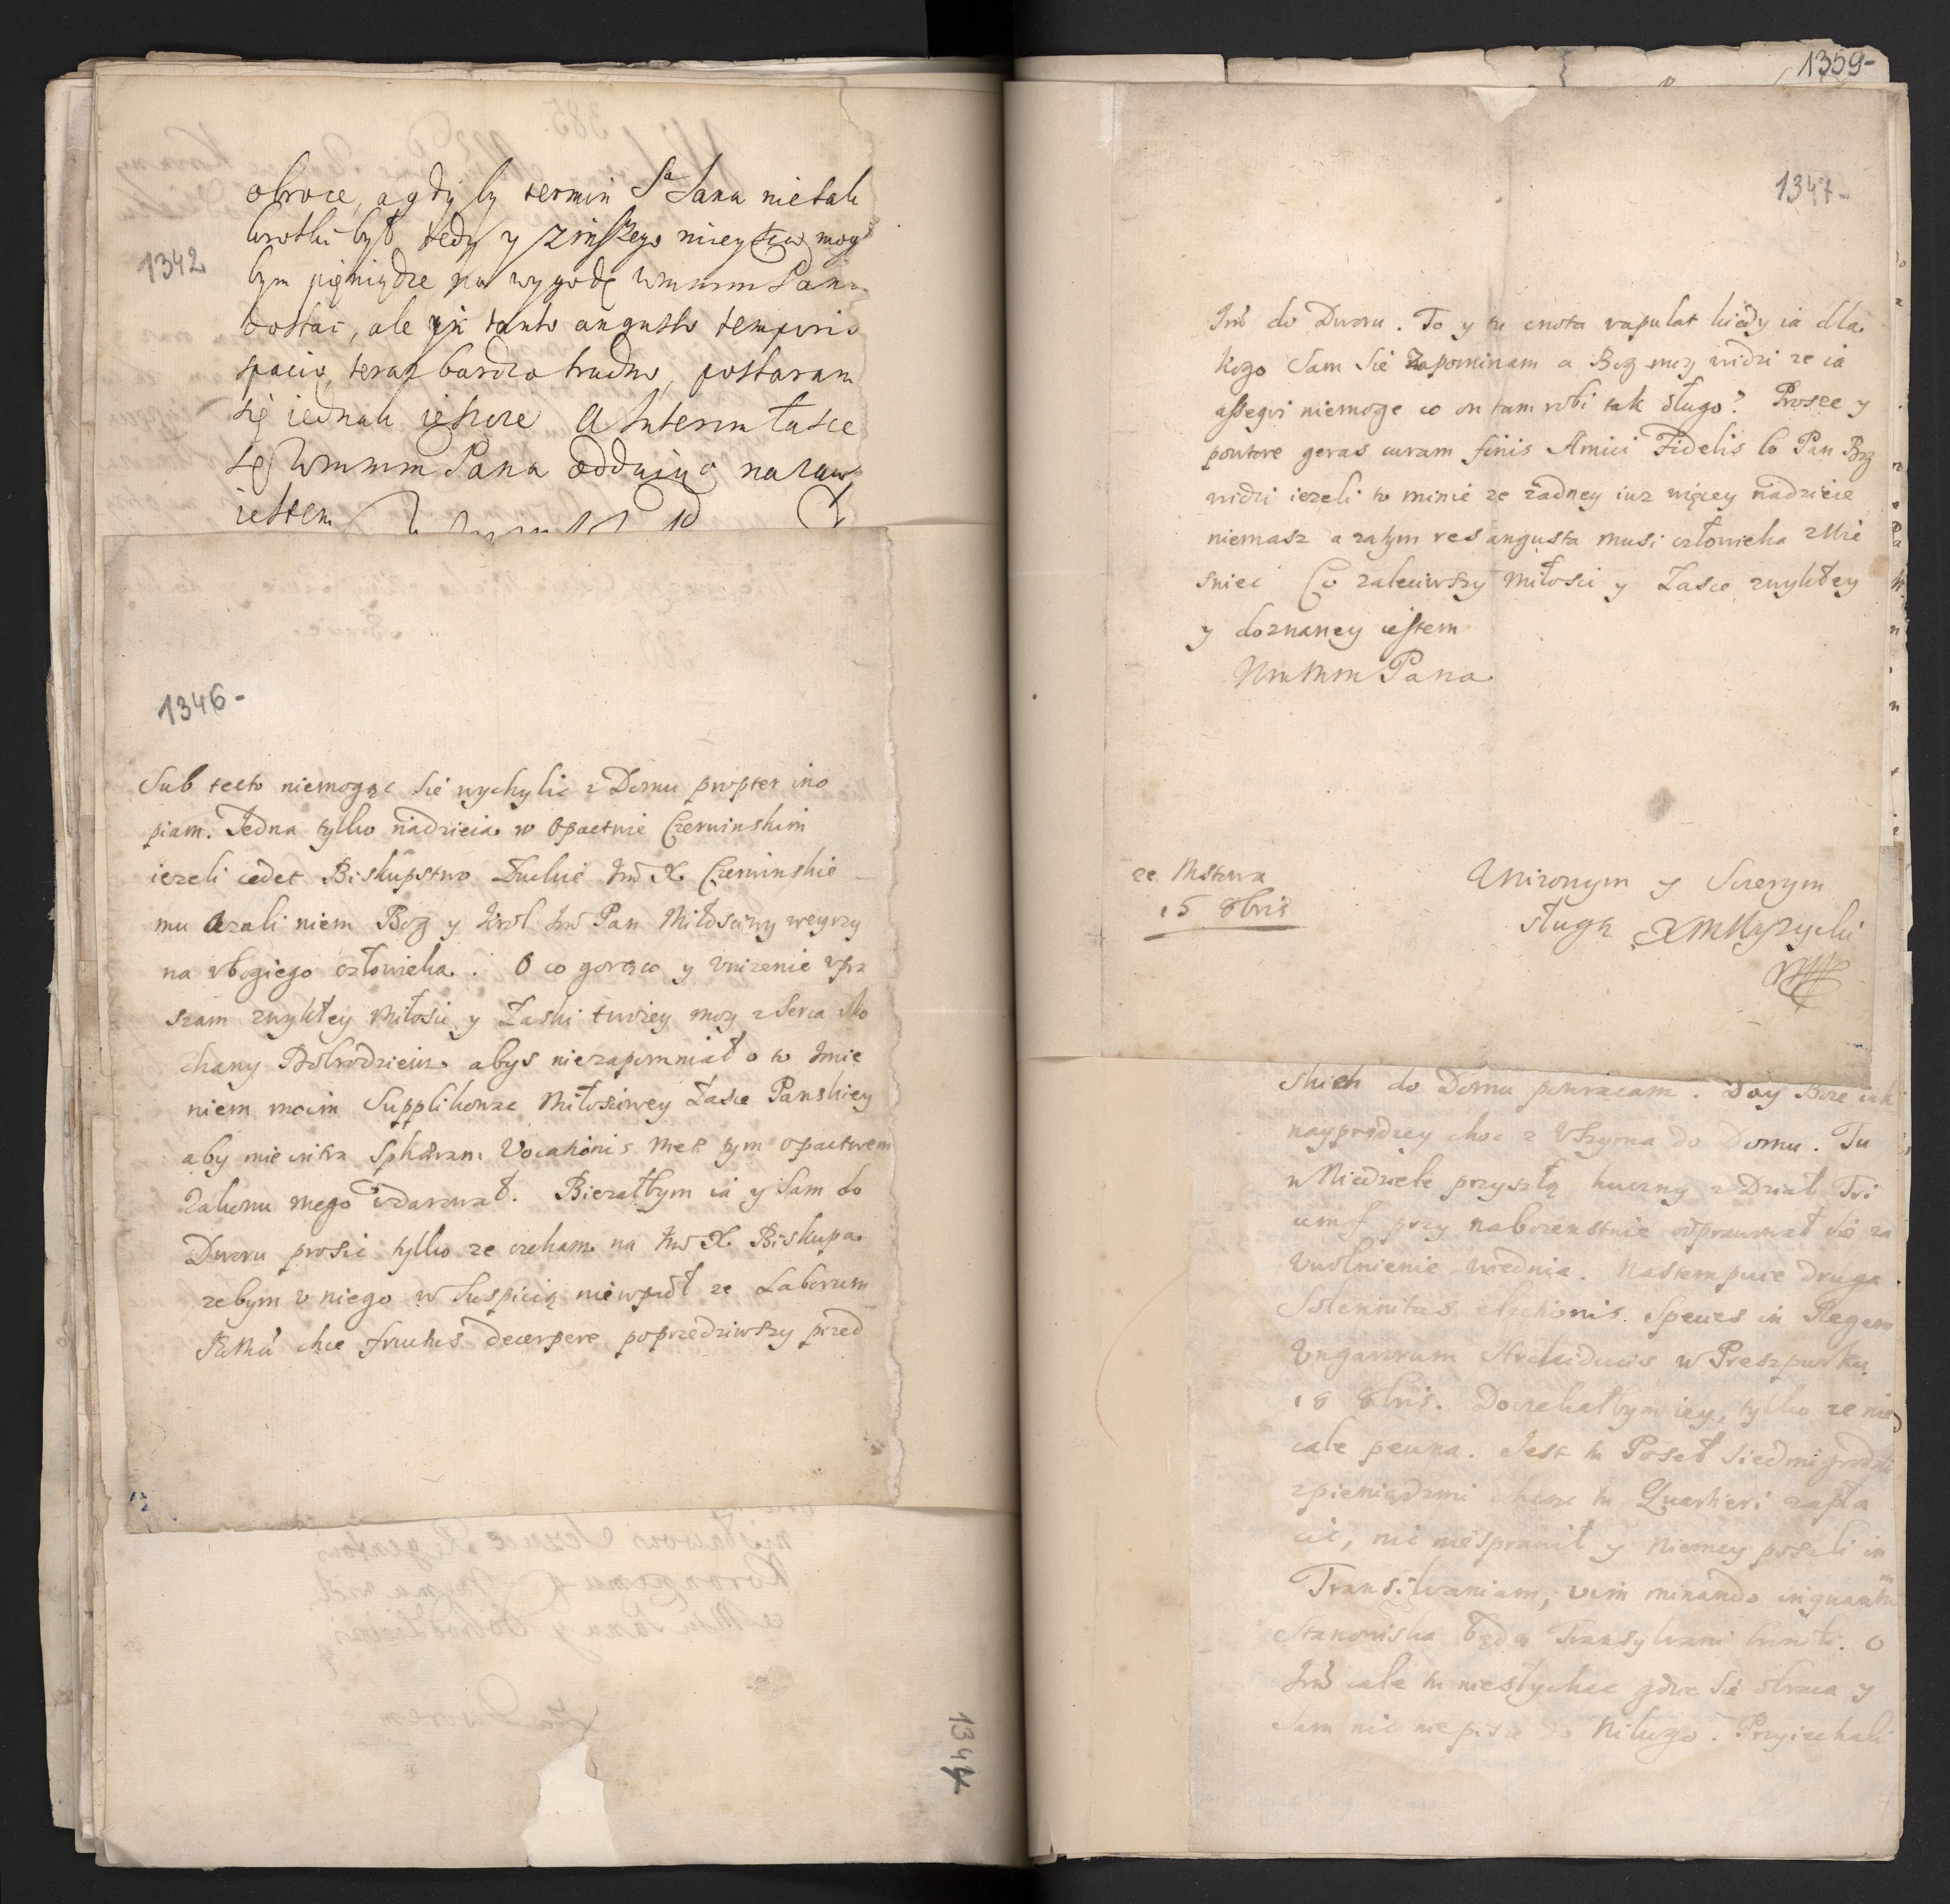 obroce, a gdy by termin Sᵃ Jana nie tak
krotki był, tedy y z inszego mieysca mogł
1342
bym pięniądze na wygodę Wmmm Pana
dostac, ale in tanto angusto temporis
spacio, teraz bardzo trudno, postaram
się iednak ieszcze Interim łasce
się Wmmm Pana oddaiąc na zaws
iestem
1346-
Sub tecto niemogąc sie wychylic z Domu propter ino
piam. Jedna tylko nadzieia w Opactwie Czerwinskim
iezeli cedet Biskupstwo Łuckie Jmᶜ X. Czerwinskie
mu azali niem Bog y Krol Jmᶜ Pan Miłosciwy weyrzy
na vbogiego człowieka. O co gorąco y vnizenie vpra
szam zwykłey miłosci y Łaski twoiey moy z serca Ko
chany Dobrodzieiu abys niezapomniał o to Jmie
niem moim Supplikowac Miłosciwey Łasce Panskiey
aby mie intra Sphæram Vocationis meæ tym opactwem
Zakonu mego vdarował. Biezałbym ia y sam do
Dworu prosic tylko ze czekam na Jmᶜ X. Biskupa
zebym v niego w suspicią niewpadł ze Laborum
chce fructus decerpere poprzedziwszy przed
1344
1359-
1347-
Jmᶜ do Dworu. To y tu cnota vapulat kiedy ia dla
kogo sam sie zapominam a Bog moy widzi ze ia
assequi niemoge co on tam robi tak długo? Prosze y
powtore geras curam finis Amici Fidelis bo Pan Bog
widzi iezeli to minie ze zadney iuz więcey nadzieie
niemasz a zatym res angusta musi człowieka zmie
sniec Co zaleciwszy miłosci y Łasce zwykłey
y doznaney iestem
WmMm Pana
ze Mstowa
15 8bris
Vnizonym y Szczerym
sługą
skich do Domu powracam. Day Boze iak
nayprędzey choc z Vszyma do Domu. Tu
w Niedziele przyszłą huczny z Dział Tri
umf przy nabozenstwie odprawował się za
Vwolnienie Wiednia. Nastempuie druga
Solennitas electionis. Species in Regem
Vngarorum Archiducis w Preszpurku
18 8bris. Doczekałbym iey, tylko ze nie
cale pewna. Jest tu Poseł Siedmigrodzki
z pieniądzmi chcąc tu Quartieri zapła
cic, nic niesprawił y Niemcy poszli in
Transilvaniam, vim minando inquantum
Stanowiska będą Transylvani bronili. O
Jmᶜ cale tu niesłychac gdzie sie obraca y
sam nic niepisze do Nikogo. Przyiechali